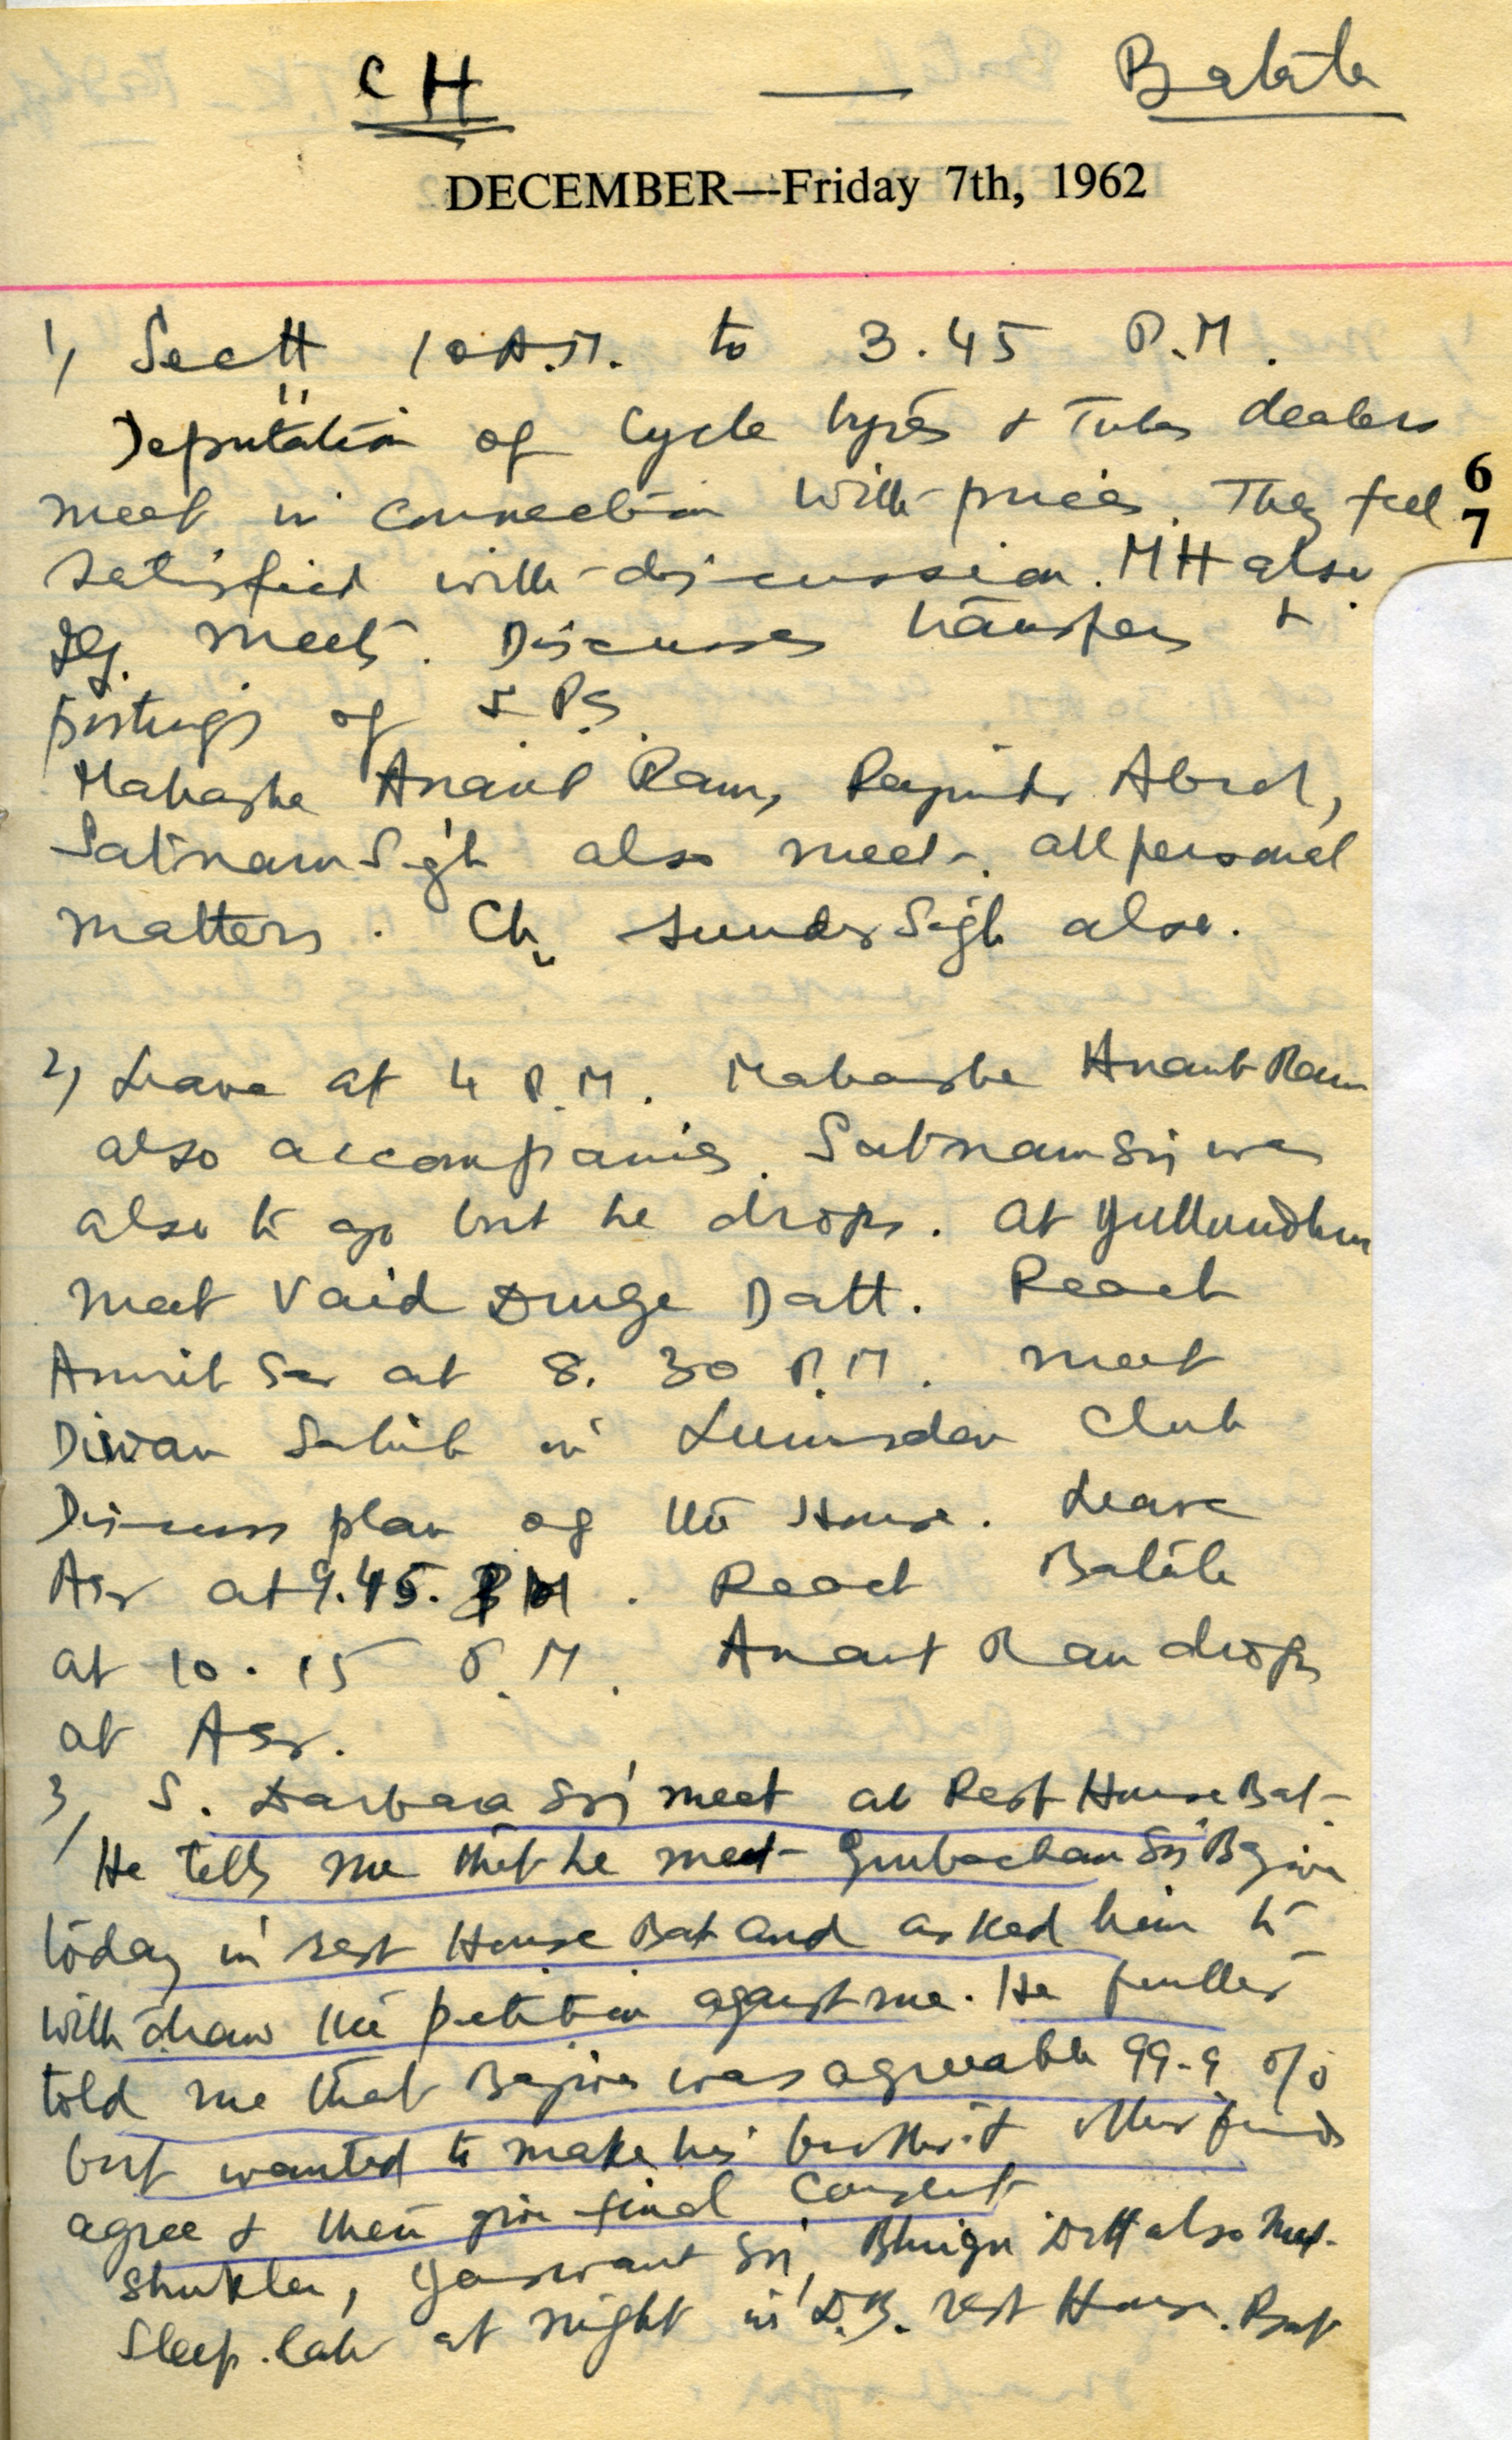 CH — Batala
DECEMBER—Friday 7th, 1962
1) Sectt 10 A.M. to 3.45 P.M.
Deputation of Cycle tyres & Tubes dealers
meet in connection with prices. They feel
6
7
satisfied with discussion. MH also
meets. Discusses transfers &
postings of I.P.S.
Mahashe Anant Ram, Rajinder Abrol,
Satnam Sigh also meet. all personal
matters. Ch. Sunder Sigh also.
2) Leave at 4 P.M. Mahashe Anant Ram
also accompanies. Satnam Sij was
also to go but he drops. at Jullundhur
meet Vaid Durga Datt. Reach
Amritsar at 8.30 P.M. meet
Diwan Sahib in Lumsden Club
Discuss plan of the House. Leave
Asr at 9.45. PM. Reach Batala
at 10.15 P.M. Anant Ram drops
at Asr.
3) S. Darbara Sij meet at Rest House Bat-
He tells me that he meet Gurbachan Sij Bajwa
today in rest House Bat and asked him to
withdraw the petition against me. He further
told me that Bajwa was agreeable 99.9 %
but wanted to make his brother & other friends
agree & then give final consent
Shukla, Yaswant Sij, Bhrigu Datt also meet.
Sleep late at night in D.B. rest House. Bat